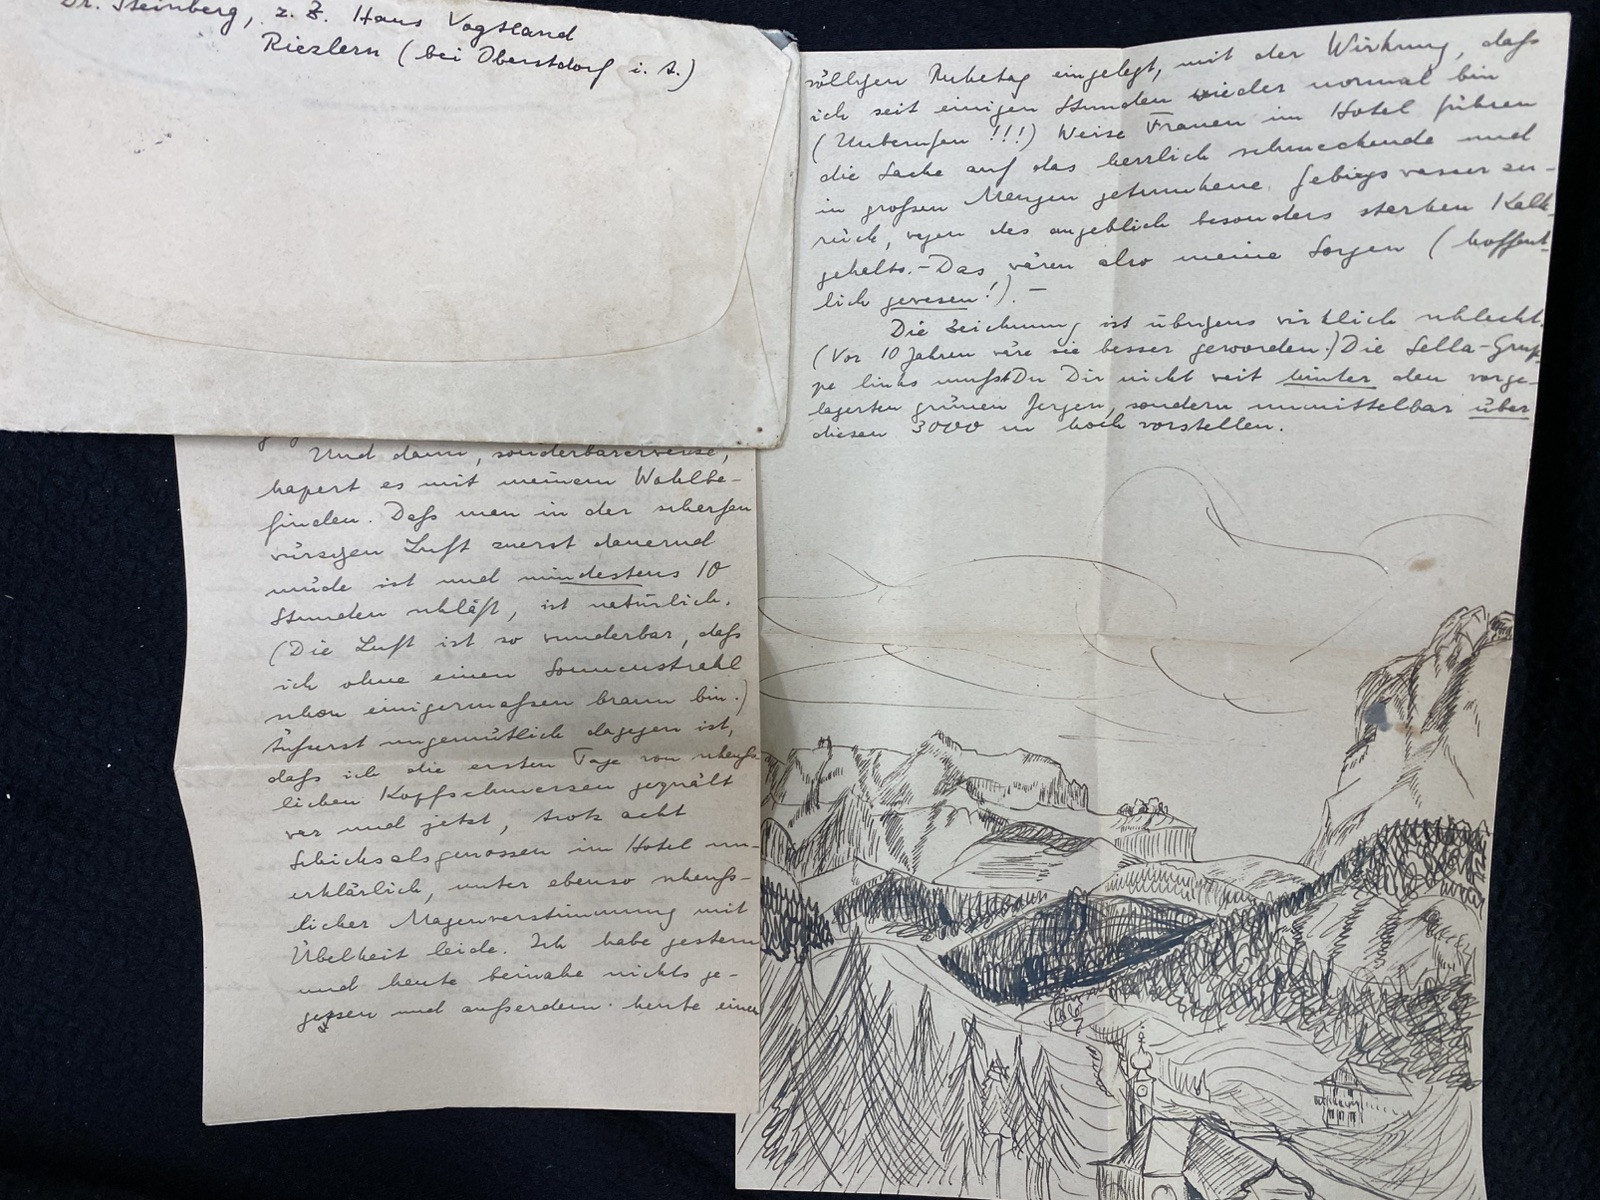 Dr. Steinberg, z. Z. Haus Vogtland
Riezlern (bei Oberstdorf i. A.)
Und dann, sonderbarerweise,
hapert es mit meinem Wohlbe-
finden. Daß man in der scharfen
würzigen Luft zuerst dauernd
müde ist und mindestens 10
Stunden schläft, ist natürlich.
(Die Luft ist so wunderbar, daß
ich ohne einen Sonnenstrahl
schon einigermaßen braun bin.)
Äußerst ungemütlich dagegen ist,
daß ich die ersten Tage von scheuß-
lichen Kopfschmerzen gequält
war und jetzt, trotz acht
Schicksalsgenossen im Hotel un-
erklärlich, unter ebenso scheuß-
licher Magenverstimmung mit
Übelkeit leide. Ich habe gestern
und heute beinahe nichts ge-
gessen und außerdem heute einen
völligen Ruhetag eingelegt, mit der Wirkung, daß
ich seit einigen Stunden wieder normal bin
(Unberufen!!!) Weise Frauen im Hotel führen
die Sache auf das herrlich schmeckende und
in großen Mengen getrunkene Gebirgswasser zu-
rück, wegen des angeblich besonders starken Kalk-
gehalts. – Das wären also meine Sorgen (hoffent-
lich gewesen!). –
Die Zeichnung ist übrigens wirklich schlecht.
(Vor 10 Jahren wäre sie besser geworden.) Die Sella-Grup-
pe links mußt Du Dir nicht weit hinter den vorge-
lagerten grünen Bergen, sondern unmittelbar über
diesen 3000 m hoch vorstellen.